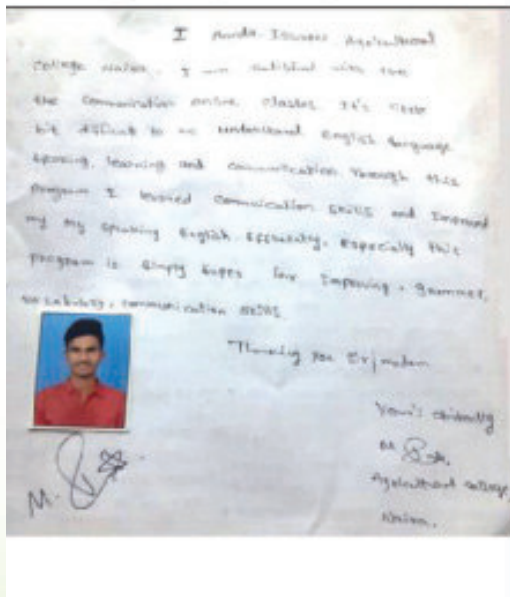 I Agricultural
College Naira. I am satisfied with the
the Communication online classes. It's little
bit difficult to me understand English language
speaking, learning and communication through this
program I learned Communication skills and Improved
my my speaking English efficiently. Especially this
program is simply super for Improving, grammer,
vocabulary, communication skills.
Thanking you Sir/madam
Your's
M.
Agricultural college,
Naira.
M.